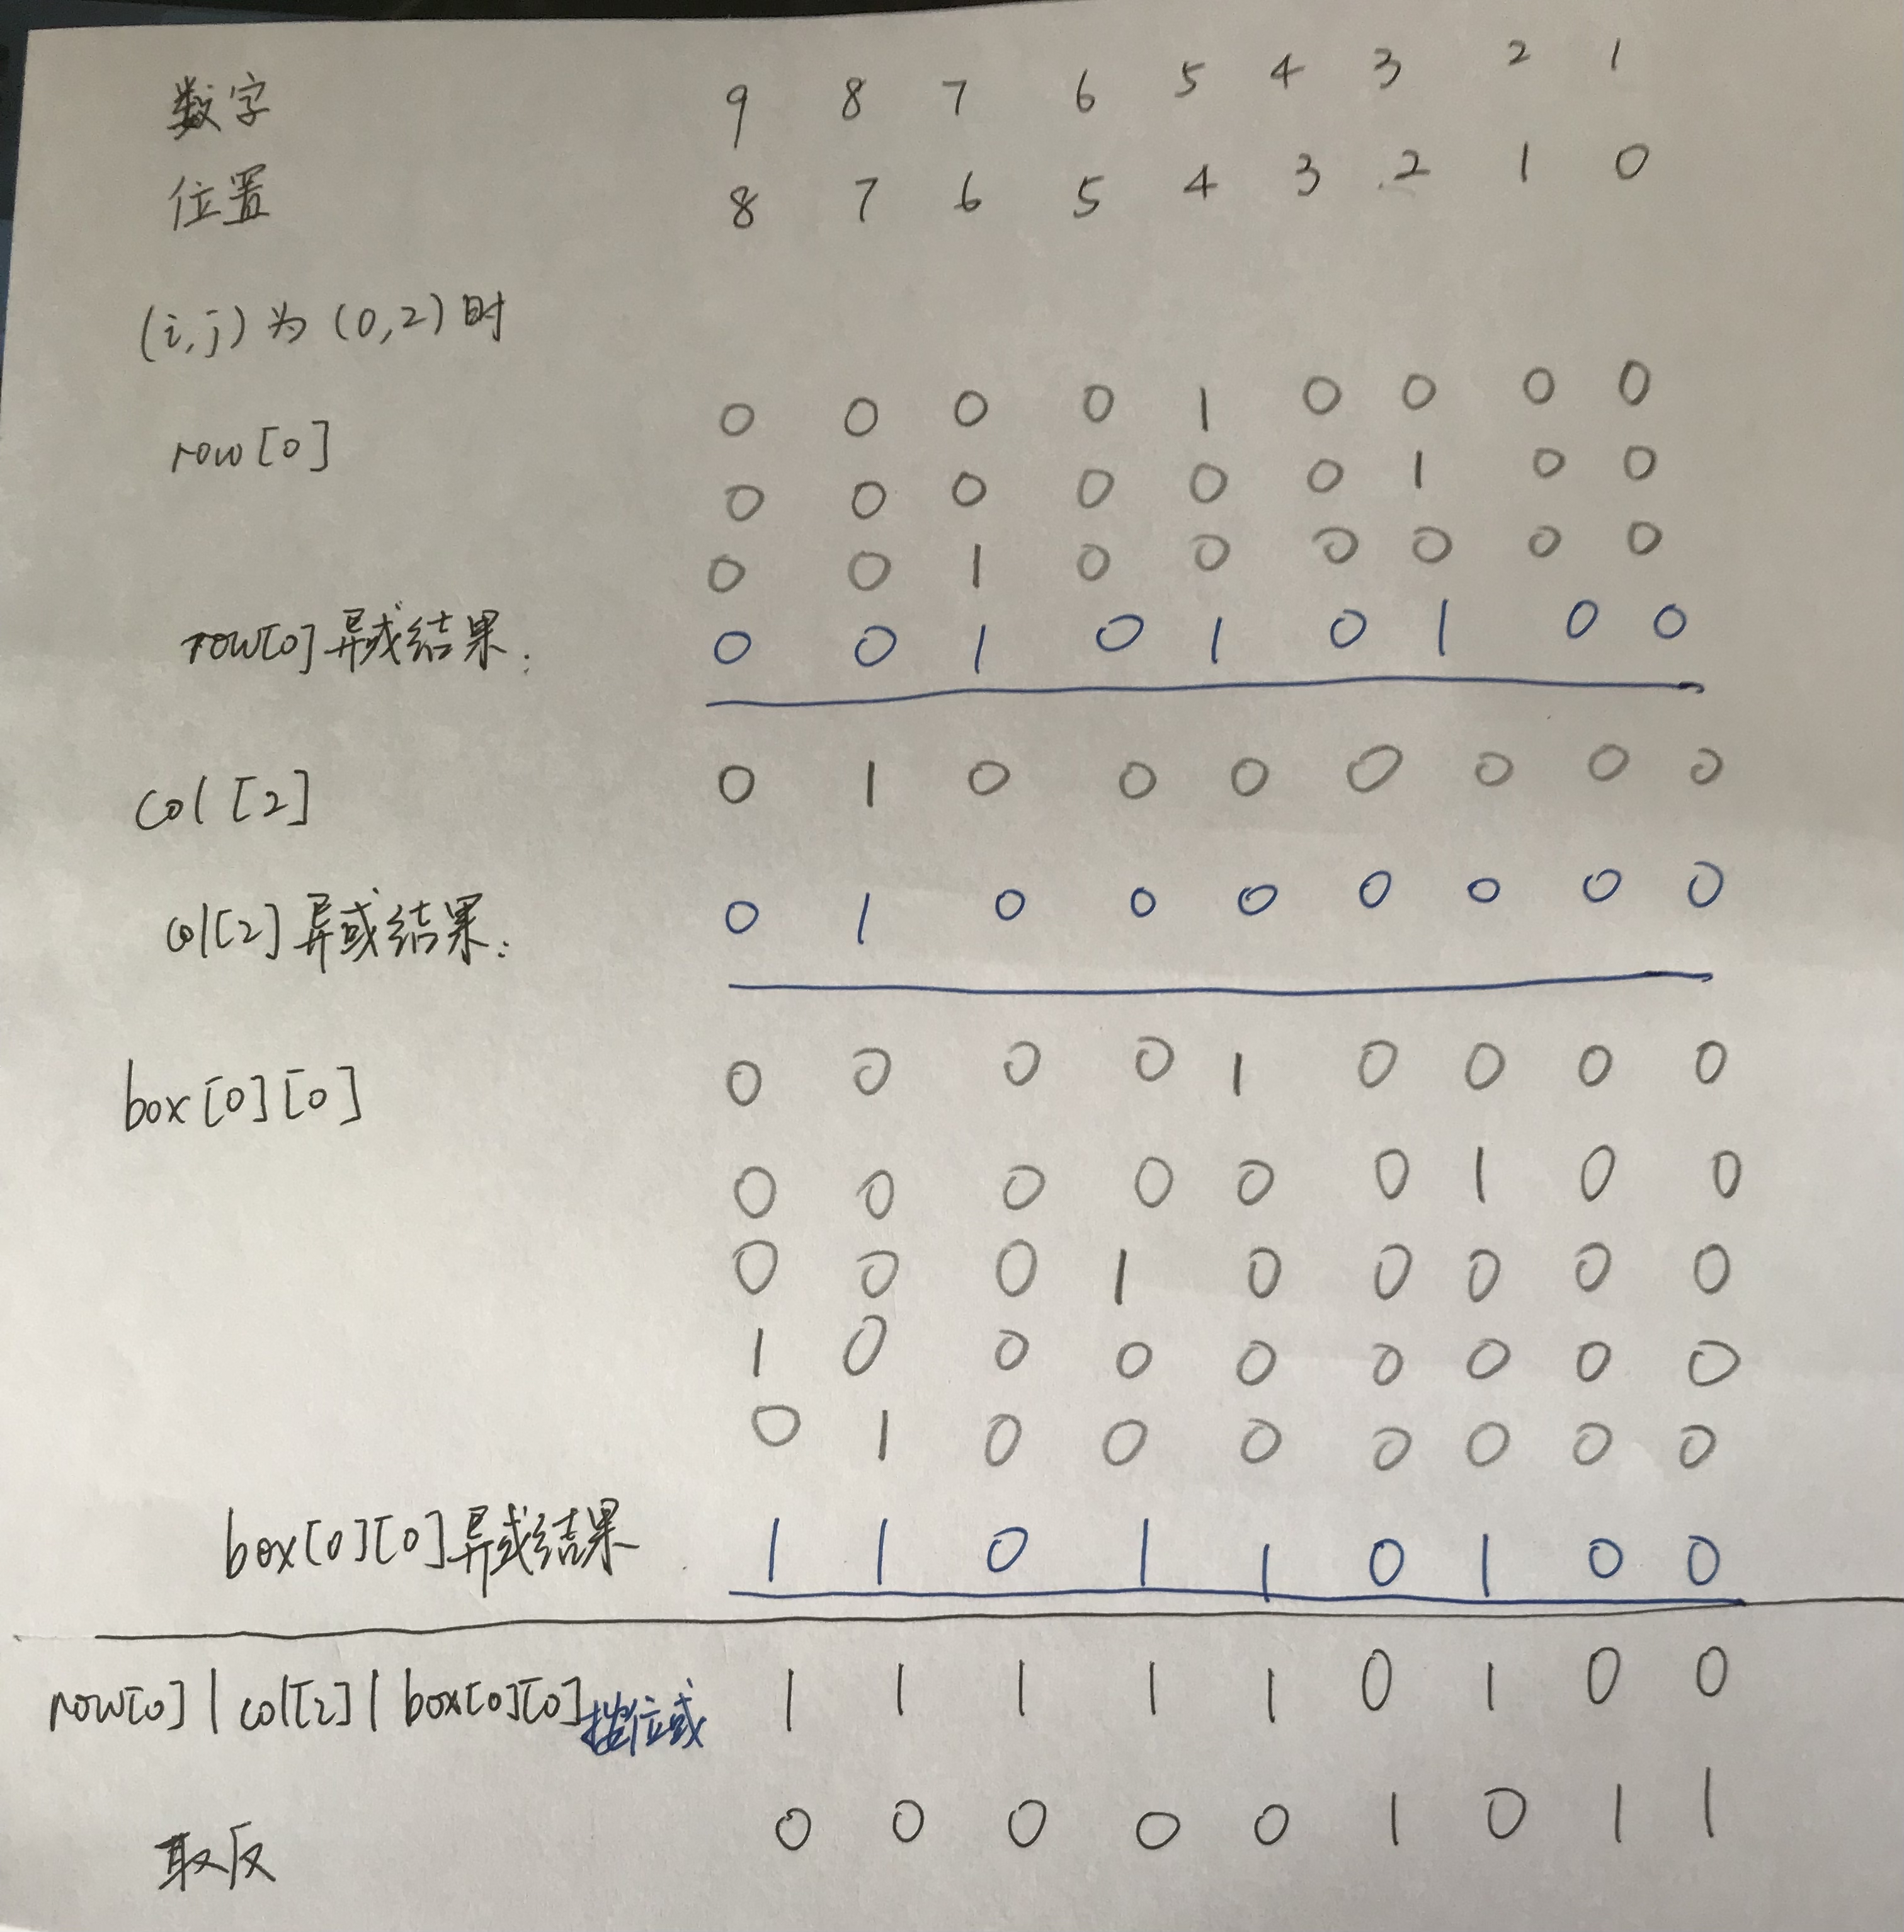 数字 9 8 7 6 5 4 3 2 1
位置 8 7 6 5 4 3 2 1 0
(i,j)为(0,2)时
row[0] 0 0 0 0 1 0 0 0 0
0 0 0 0 0 0 1 0 0
0 0 1 0 0 0 0 0 0
row[0]异或结果: 0 0 1 0 1 0 1 0 0
col[2] 0 1 0 0 0 0 0 0 0
col[2]异或结果: 0 1 0 0 0 0 0 0 0
box[0][0] 0 0 0 0 1 0 0 0 0
0 0 0 0 0 0 1 0 0
0 0 0 1 0 0 0 0 0
1 0 0 0 0 0 0 0 0
0 1 0 0 0 0 0 0 0
box[0][0]异或结果 1 1 0 1 1 0 1 0 0
row[0]|col[2]|box[0][0]按位或 1 1 1 1 1 0 1 0 0
取反 0 0 0 0 0 1 0 1 1